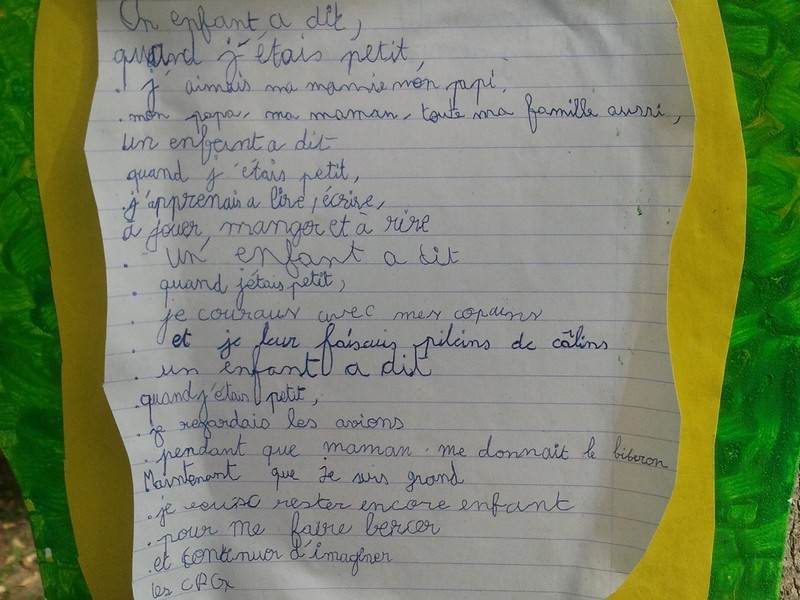 Un enfant a dit,
quand j'étais petit,
. j'aimais ma mamie mon papi,
. mon papa, ma maman, toute ma famille aussi,
un enfant a dit
quand j'étais petit,
. j'apprenais a lire, écrire,
à jouer, manger et à rire
. un enfant a dit
. quand jétais petit,
. je couraus avec mes copains
. et je leur faisais pleins de câlins
. un enfant a dit
. quand j'étais petit,
. je regardais les avions
. pendant que maman me donnait le biberon
Maintenant que je suis grand
. je rester encore enfant
. pour me faire bercer
. et continuer d'imaginer
les